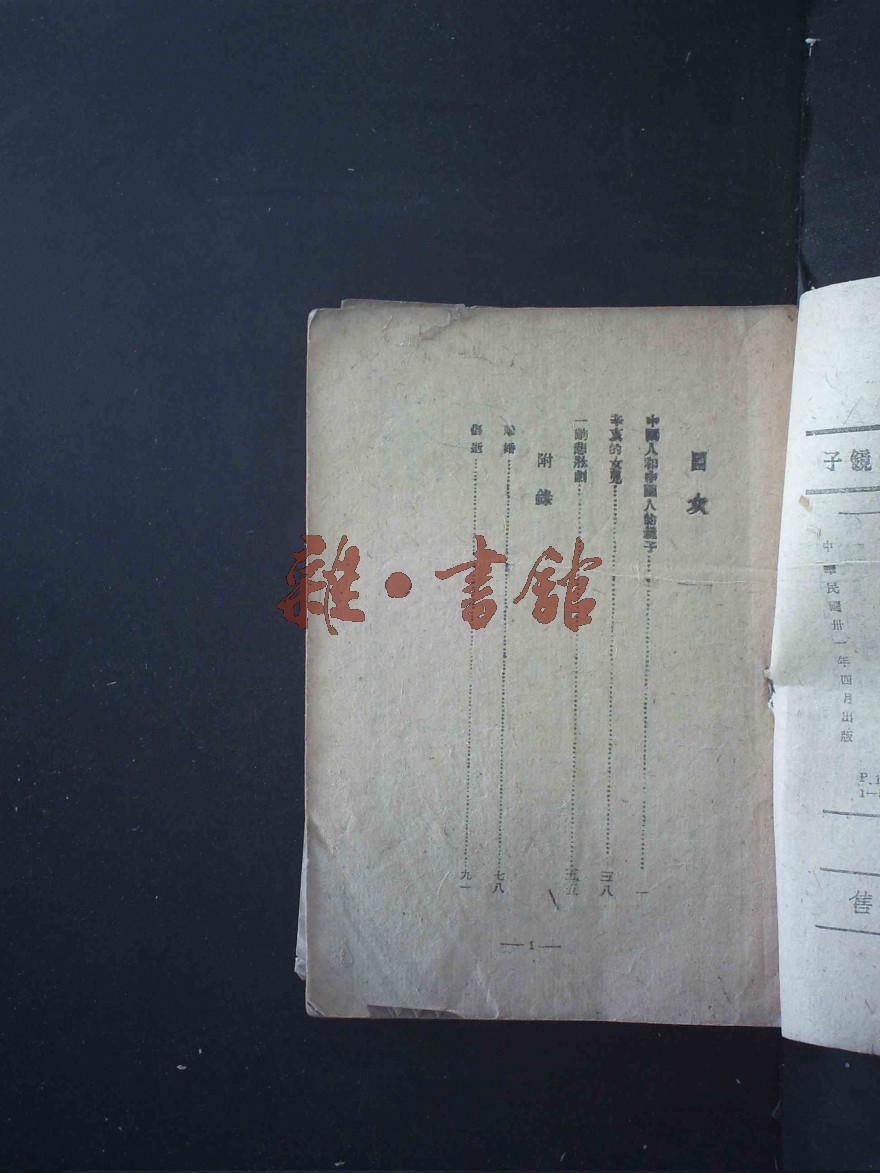 目次
中國人和中國人的鏡子 一
辛亥的女兒 三八
一勄悲壯劇 五五
附錄
離婚 七八
傷逝 九一
—1—
雜·書館
鏡子
中華民國卅一年四月出版
P. 1
1—
售